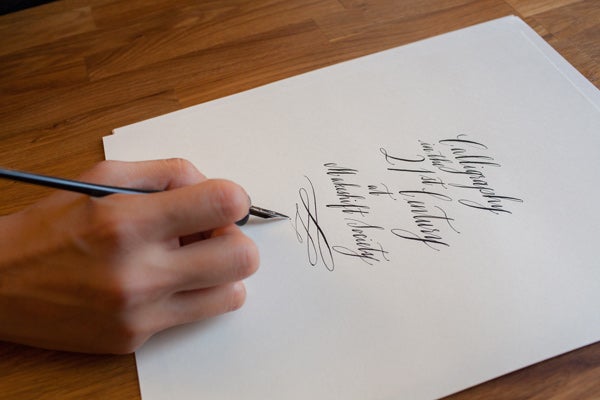 Calligraphy
in the
21st Century
at
Makeshift Society